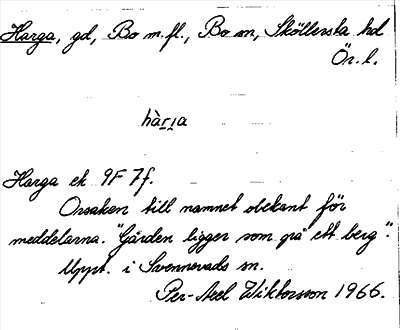 Harga, gd, Bo m.fl., Bo sn, Sköllersta hd
Ör. l.
hàr̯ı̯a
Harga ek 9F 7f.
Orsaken till namnet obekant för
meddelarna. "Gården ligger som på ett berg".
Uppt. i Svennevads sn.
Per-Axel Wiktorsson 1966.